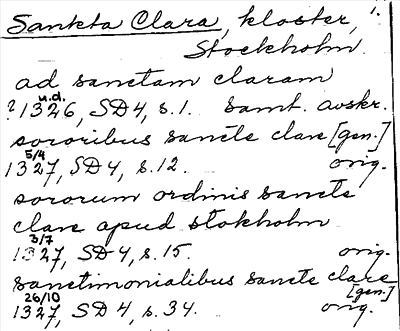 Sankta Clara, kloster, 1.
Stockholm.
ad sanctam claram
u.d.
? 1326, SD 4, s. 1. samt. avskr.
sororibus sancte clare [gen.]
5/4
1327, SD 4, s. 12. orig.
sororum ordinis sancte
clare apud stokholm
3/7
1327, SD 4, s. 15. orig.
sanctimonialibus sancte clare
[gen.]
26/10
1327, SD 4, s. 34. orig.